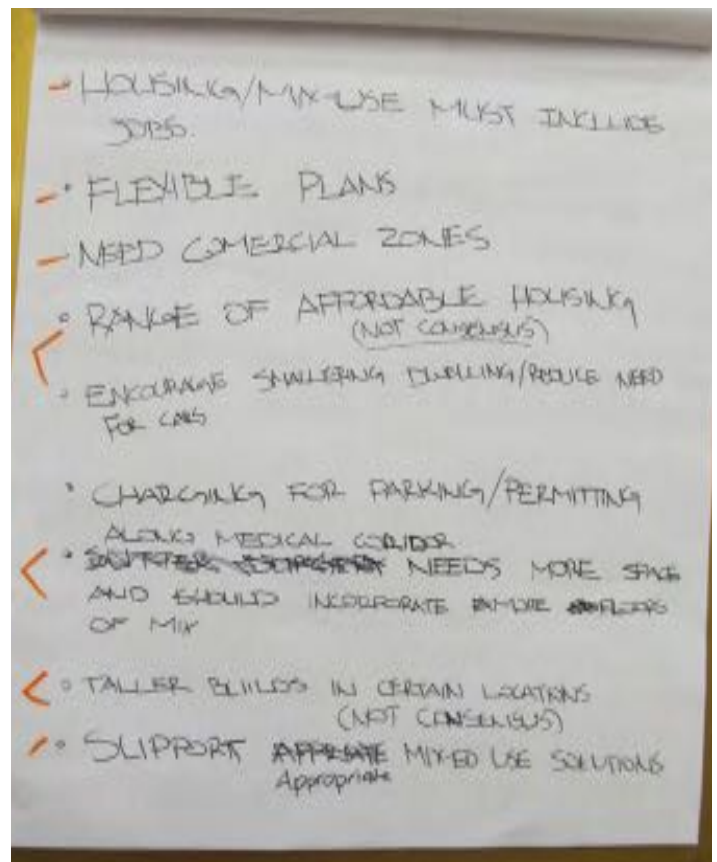 - HOUSING/MIX-USE MUST INCLUDE
JOBS.
- • FLEXIBLE PLANS
- NEED COMERCIAL ZONES
• RANGE OF AFFORDABLE HOUSING
(NOT CONSENSUS)
• ENCOURAGE SMALLERING DWELLING/REDUCE NEED
FOR CARS
• CHARGING FOR PARKING/PERMITTING
ALONG MEDICAL CORIDOR
• NEEDS MORE SPACE
AND SHOULD INCORPORATE MORE FLOORS
OF MIX
• TALLER BUILDS IN CERTAIN LOCATIONS
(NOT CONSENSUS)
• SUPPORT MIXED USE SOLUTIONS
Appropriate